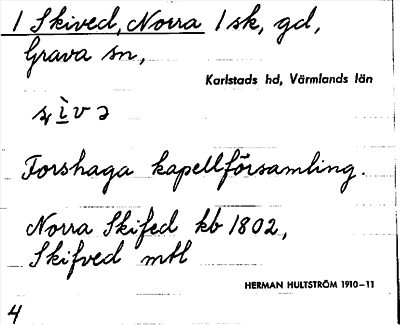 1 Skived, Norra 1 sk, gd,
Grava sn,
Karlstads hd, Värmlands län
Forshaga kapellförsamling.
Norra Skifed kb 1802,
Skifved mtl
HERMAN HULTSTRÖM 1910–11
4